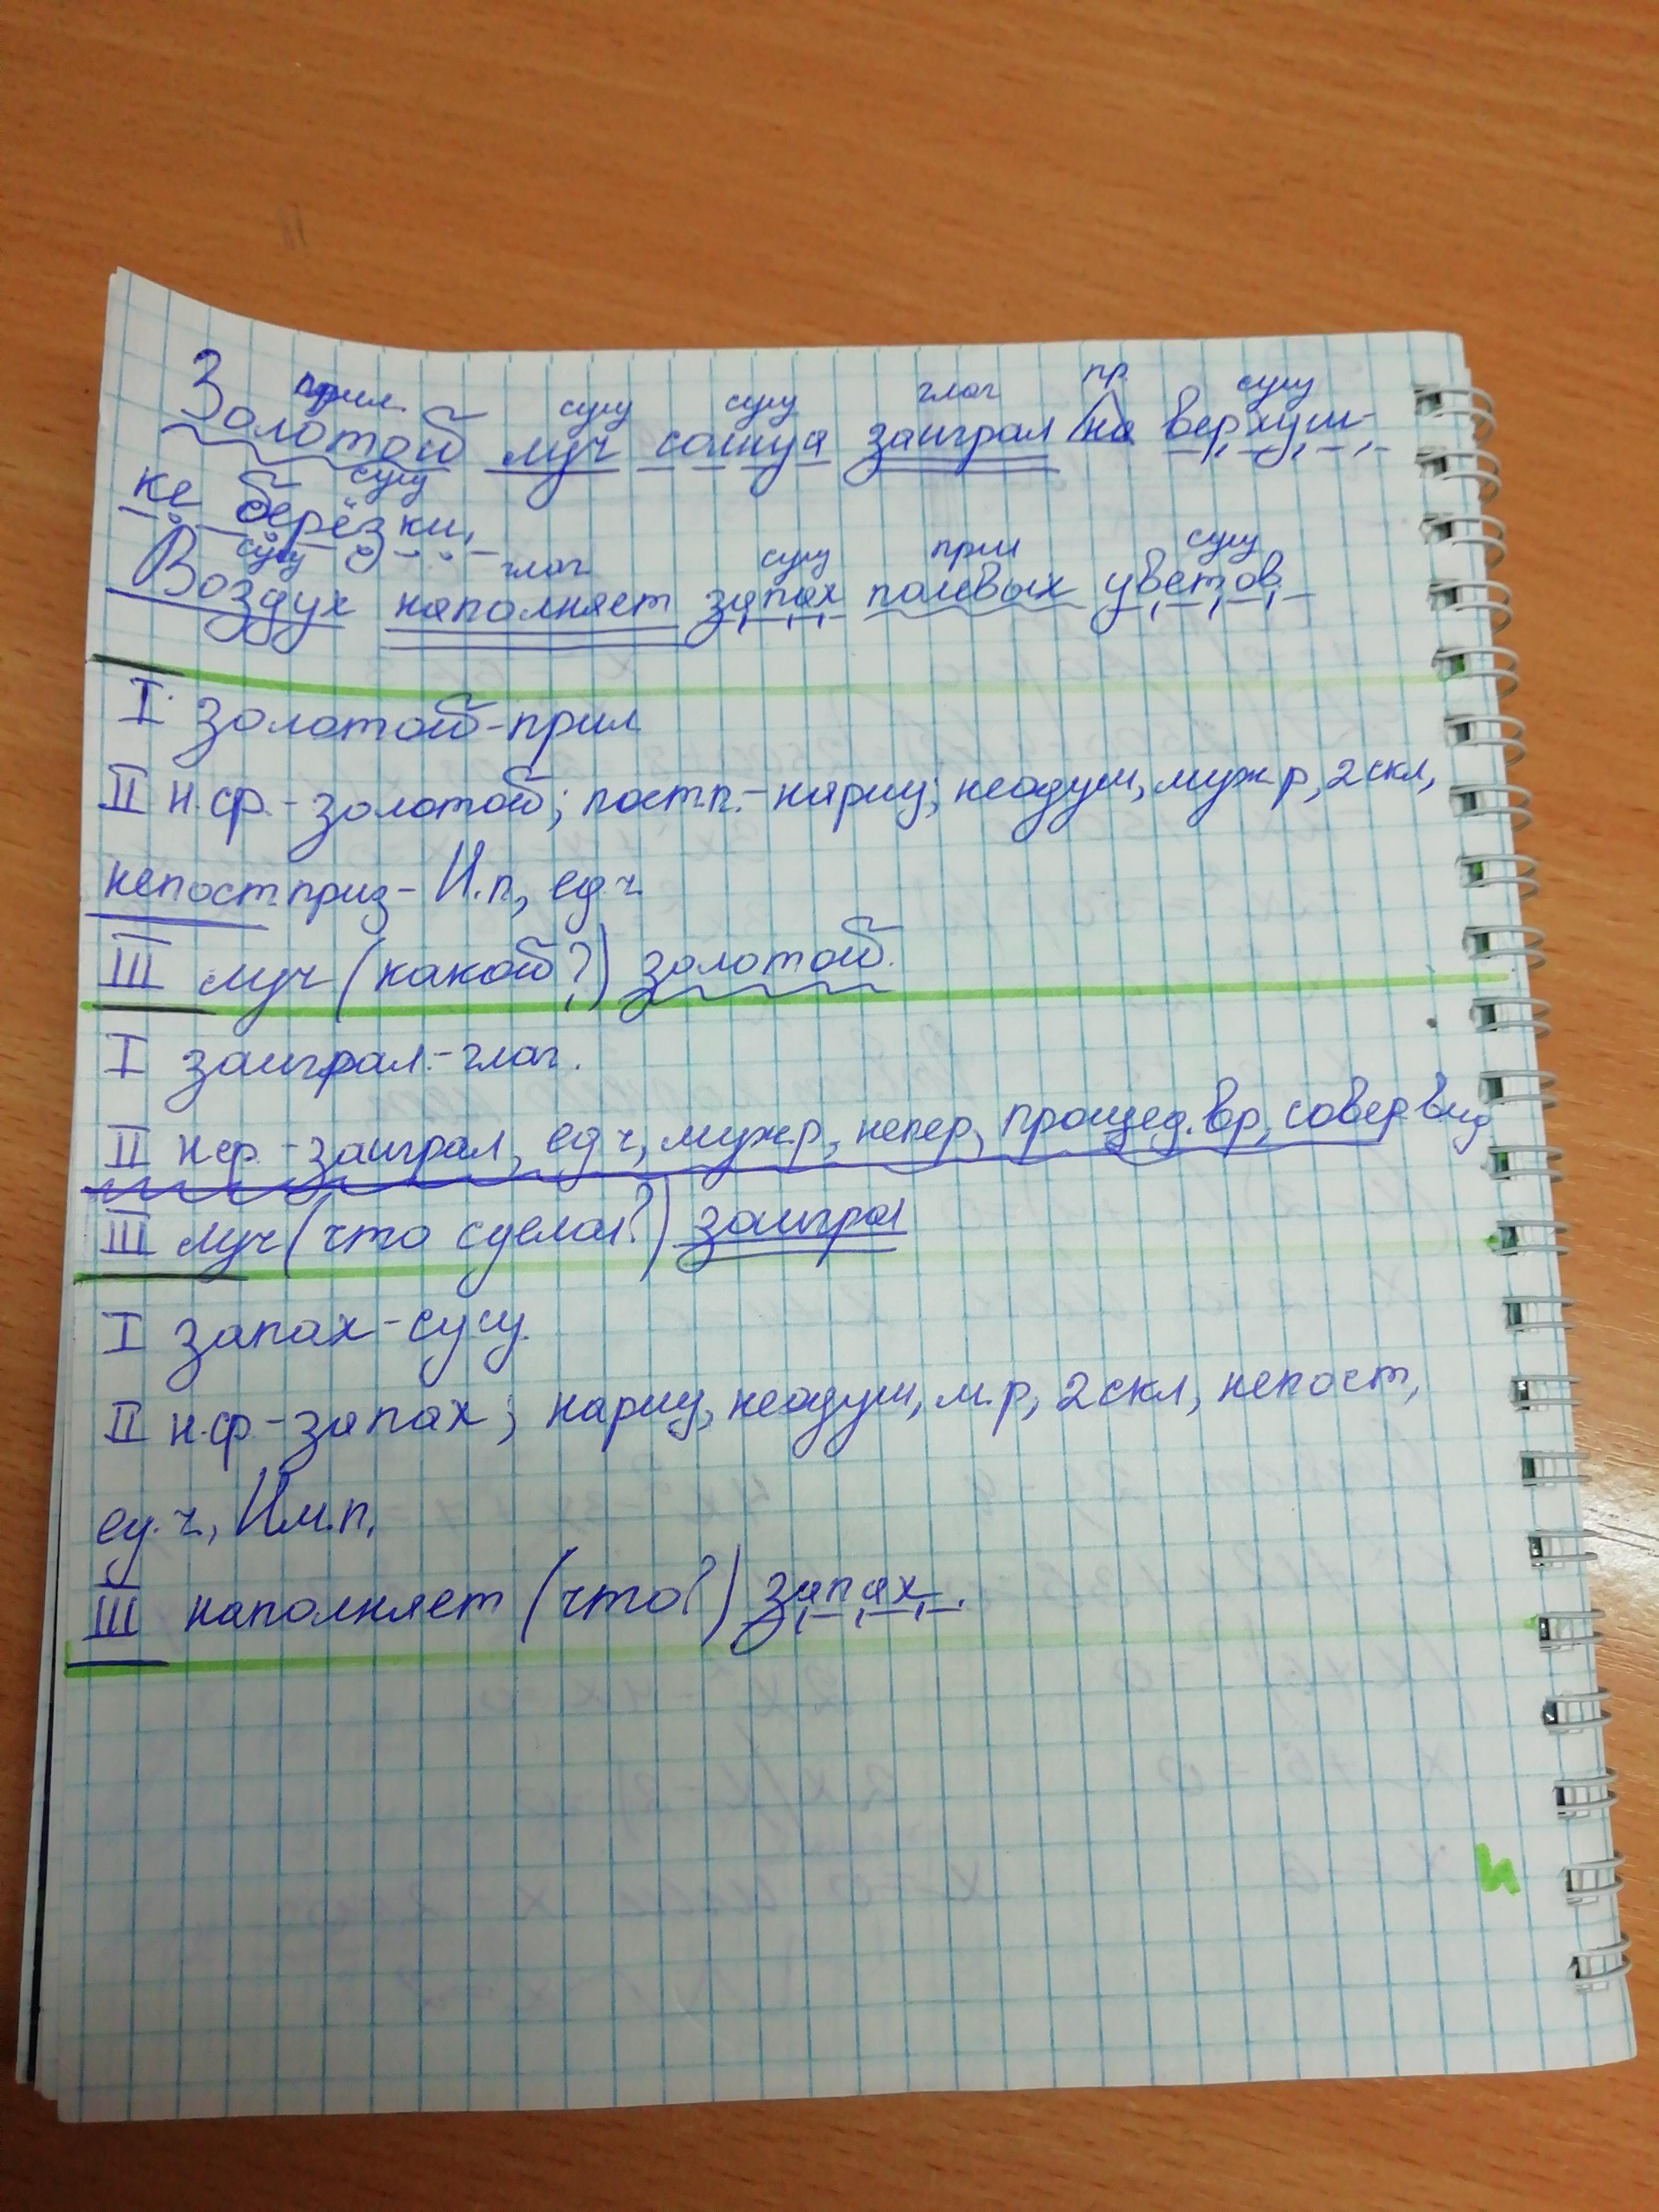 прил. сущ сущ глаг пр. сущ
Золотой луч солнца заиграл на верхуш-
сущ
ке берёзки.
сущ глаг сущ прил сущ
Воздух наполняет запах полевых цветов.
I золотой-прил
II н.ф.-золотой; пост.п.-нариц; неодуш, муж р, 2 скл,
непост приз- И.п, ед.ч
III луч (какой?) золотой.
I заиграл.-глаг.
II н.ф.-заиграл, ед ч, муж.р, непер, прошед.вр, совер.вид
III луч (что сделал?) заиграл
I запах-сущ.
II н.ф-запах; нариц, неодуш, м.р, 2 скл, непост,
ед.ч, Им.п,
III наполняет (что?) запах.